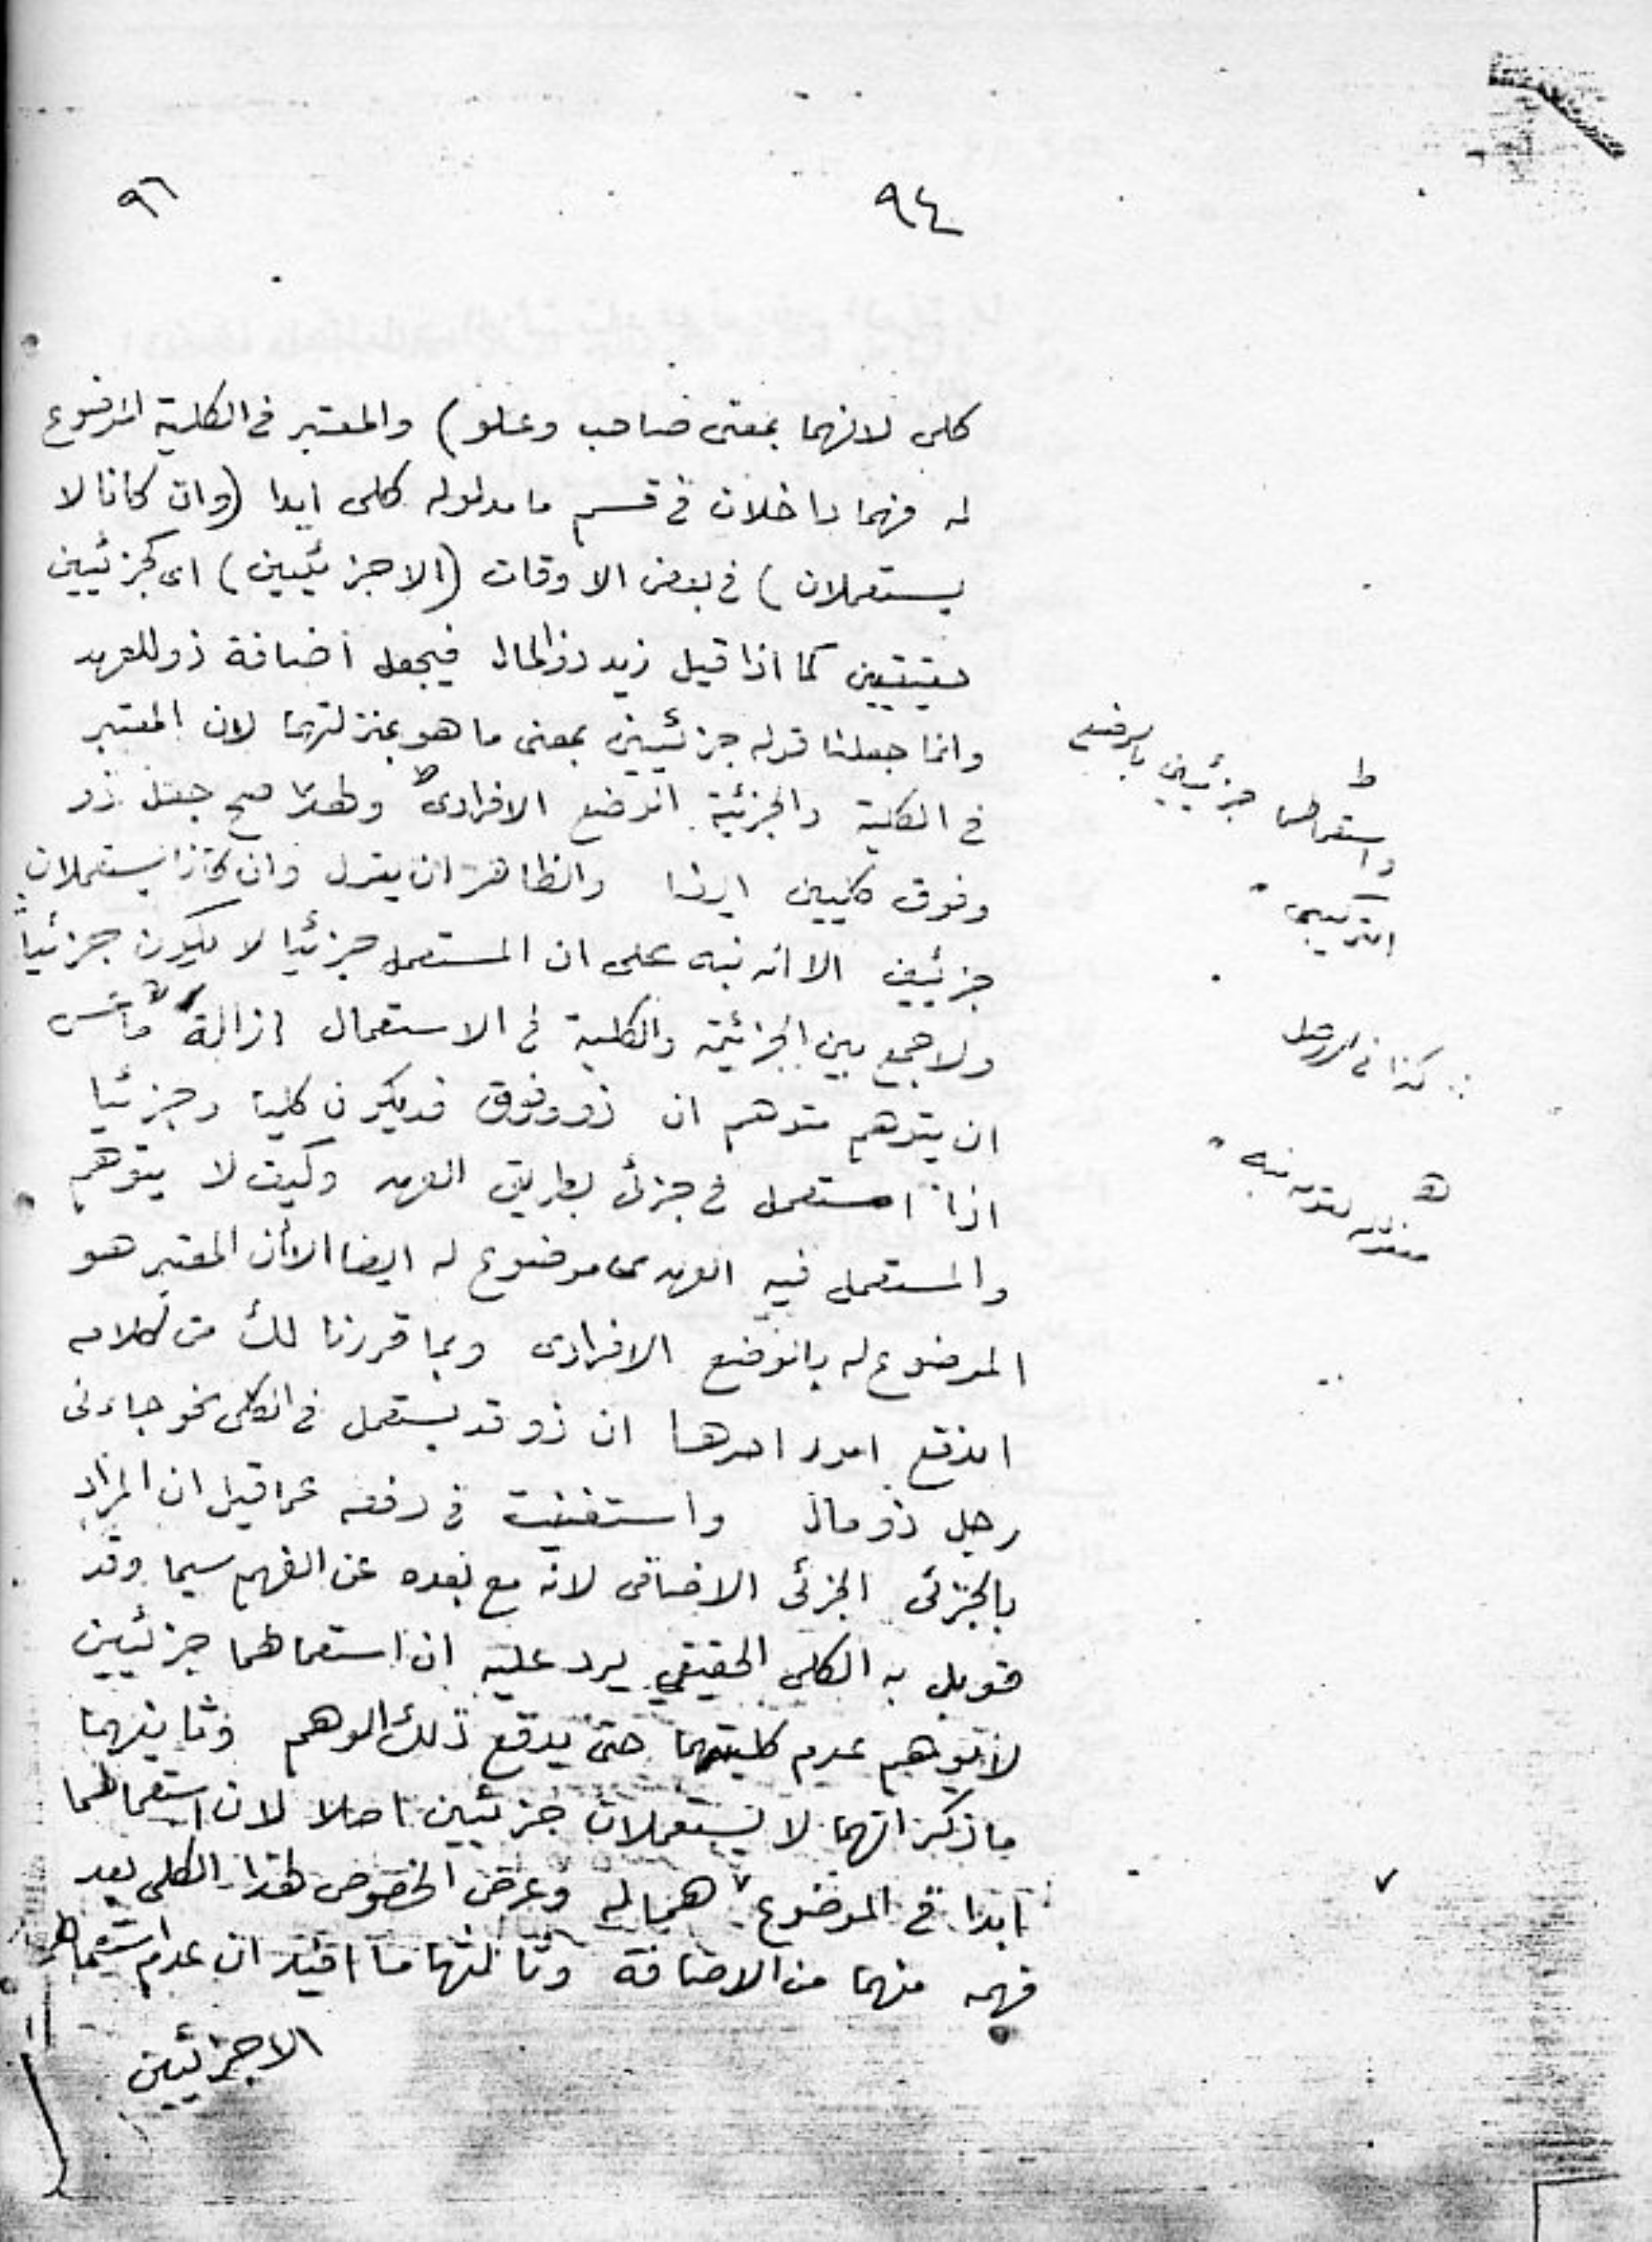 ٩٤
٩٦
كلى لانهما بمعنى صاحب وعلو) والمعتبر فى الكلية الموضوع
له فهما داخلان فى قسم ما مدلوله كلى ابدا (وان كانا لا
يستعملان) فى بعض الاوقات (الا جزئيين) اى كجزئيين
حقيقيين كما اذا قيل زيد ذو المال فيجعل اضافة ذو للعهد
وانما جعلنا قوله جزئيين بمعنى ما هو بمنزلتهما لان المعتبر
فى الكلية والجزئية الوضع الافرادى ط ولهذا صح جعل ذو
وفوق كليين ابدا والظاهر ان يقول وان كانا يستعملان
جزئيين الا انه نبه على ان المستعمل جزئيا لا يكون جزئياً
ولا جمع بين الجزئية والكلية فى الاستعمال ازالة
ان يتوهم متوهم ان ذو وفوق قد يكون كليا وجزئيا
اذا استعمل فى جزئى بطريق العهد وكيف لا يتوهم
والمستعمل فيه العهدى موضوع له ايضا الا ان المعتبر هو
الموضوع له بالوضع الافرادى وبما قررنا لك من كلامه
اندفع امور احدها ان ذو قد يستعمل فى الكلى نحو جاءنى
رجل ذو مال واستغنيت فى دفعه عما قيل ان المراد
بالجزئى الجزئى الاضافى لانه مع بعده عن الفهم سيما وقد
قوبل به الكلى الحقيقي يرد عليه ان استعمالهما جزئيين
لا يوهم عدم كليتهما حتى يدفع ذلك الوهم وثانيهما
ما ذكر انهما لا يستعملان جزئيين اصلا لان استعمالهما
ابدا فى الموضوع هما له وعرض الخصوص لهذا الكلى بعد
فهمه منهما من الاضافة وثالثها ما افيد ان عدم استعمالهما
الا جزئيين
ط
واستعمالهما جزئيين بالوضع
التركيبى
كذا فى الاصل
ه
متعلق بقوله نبه